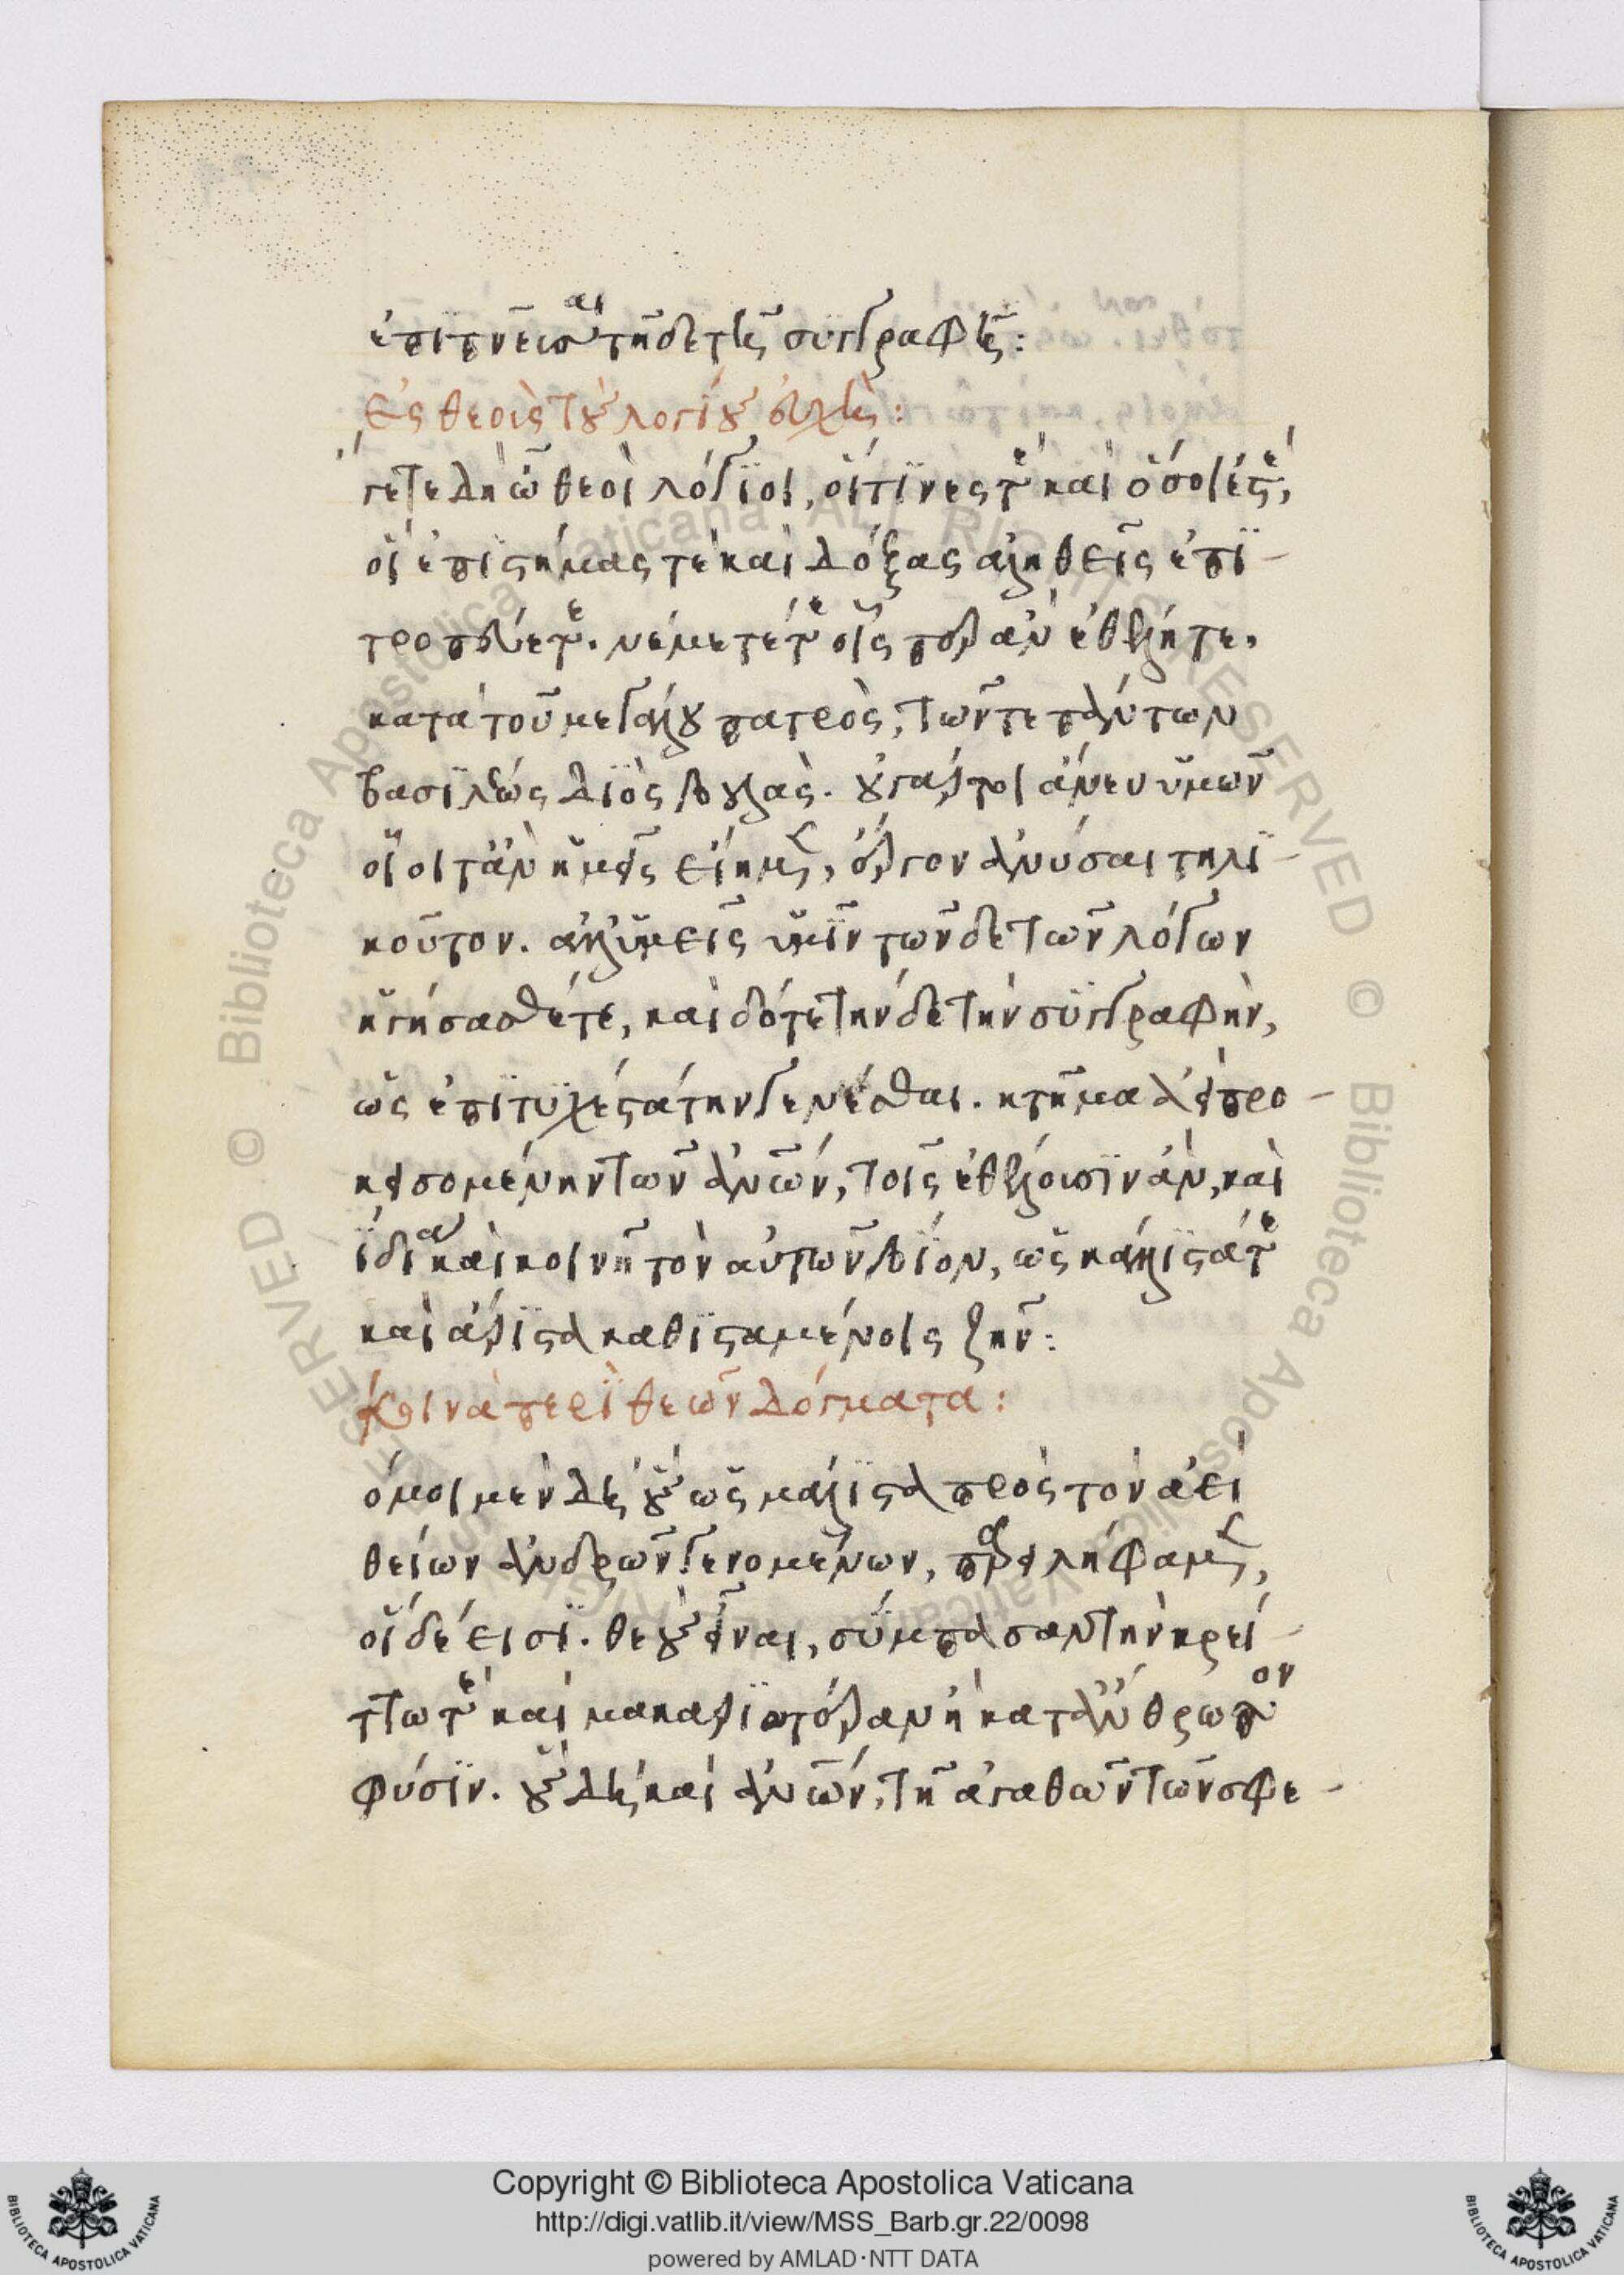 ἐπιπνεῖσθαι τῆσδε τῆς συγγραφῆς:
Ἐς θεοὺς τοῦ λογίου εὐχὴ:
γετε δὴ ὦ θεοὶ λόγιοι, οἵτινές τε καὶ ὅσοι ἐστέ,
οἳ ἐπιστήμας τε καὶ δόξας ἀληθεῖς ἐπι-
τροπεύετε. νέμετέ τε οἷς περ ἂν ἐθέλητε,
κατὰ τοῦ μεγάλου πατρὸς, τῶν τε πάντων
βασιλέως Διὸς βουλὰς. οὐ γάρ τοι ἄνευ ὑμῶν
οἷοί τ' ἂν ἡμεῖς εἴημεν, ἔργον ἀνύσαι τηλι-
κοῦτον. ἀλλ' ὑμεῖς ἡμῖν τῶνδε τῶν λόγων
ἡγήσασθέ τε, καὶ δότε τήνδε τὴν συγγραφὴν,
ὡς ἐπιτυχεστάτην γενέσθαι. κτῆμα ἀεὶ προ-
κεισομένην τῶν ἀνθρώπων, τοῖς ἐθέλουσιν ἂν, καὶ
ἰδίᾳ καὶ κοινῇ τὸν αὐτῶν βίον, ὡς κάλλιστά τε
καὶ ἄριστα καθισταμένοις ζῆν:
Κοινὰ περὶ θεῶν δόγματα:
ὅμοι μὲν δὴ οὓς ὡς μάλιστα πρὸς τὸν ἀεὶ
θείων ἀνδρῶν γενομένων, παρειλήφαμεν,
οἵδέ εἰσι. θεοὺς εἶναι, σύμπασαν τὴν κρεί-
ττω τε καὶ μακαριωτέραν ἢ κατ' ἄνθρωπον
φύσιν. οὓς δὴ καὶ ἀνθρώπων, τῇ ἀγαθῶν τῶν σφε-
Copyright © Biblioteca Apostolica Vaticana
http://digi.vatlib.it/view/MSS_Barb.gr.22/0098
powered by AMLAD·NTT DATA